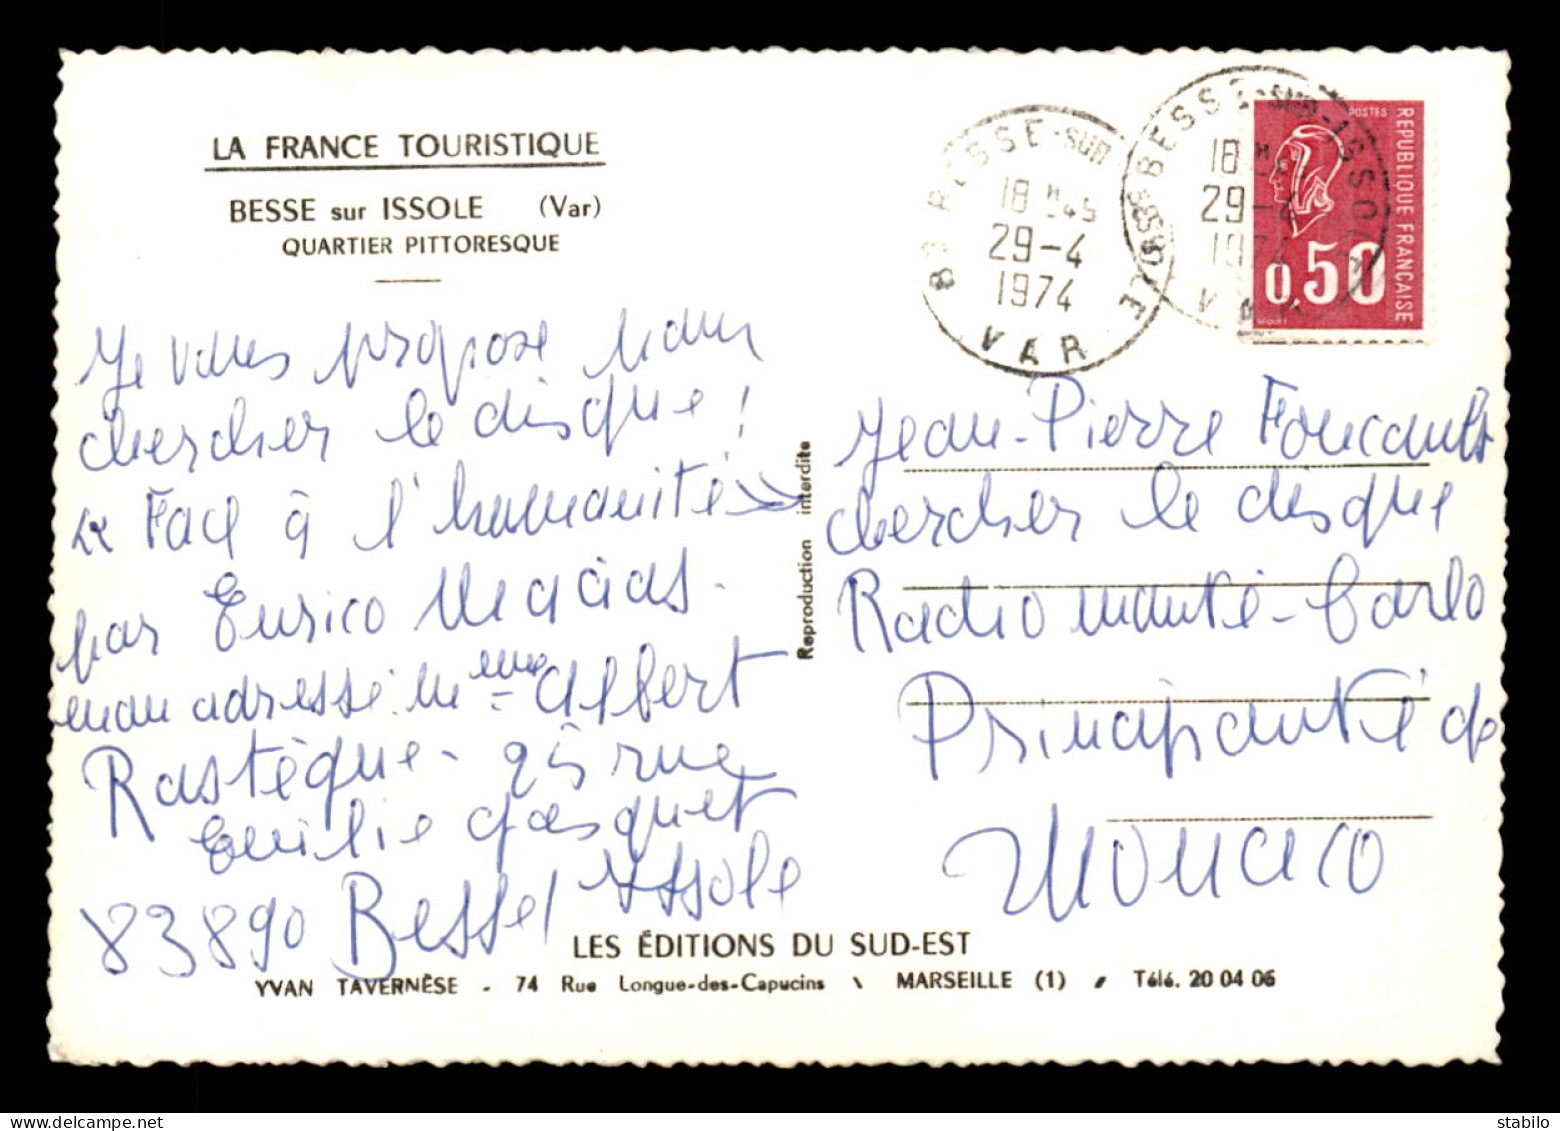 LA FRANCE TOURISTIQUE
BESSE sur ISSOLE (Var)
QUARTIER PITTORESQUE
Je vous propose pour
chercher le disque !
« Face à l'humanité »
par Enrico Macias.
mon adresse. Mme Albert
Rastègue - 25 rue
Emilie Gasquet
83890 Besse s/ Issole
Reproduction interdite
83 BESSE-SUR-ISSOLE
18 H 45
29-4
1974
VAR
83 BESSE-SUR-ISSOLE
18 H
29-4
1974
VAR
POSTES
REPUBLIQUE FRANÇAISE
0,50
Jean-Pierre Foucault
chercher le disque
Radio Monté-Carlo
Principauté de
Monaco
LES ÉDITIONS DU SUD-EST
YVAN TAVERNÈSE - 74 Rue Longue-des-Capucins \ MARSEILLE (1) / Télé. 20 04 06
delcampe.net
stabilo